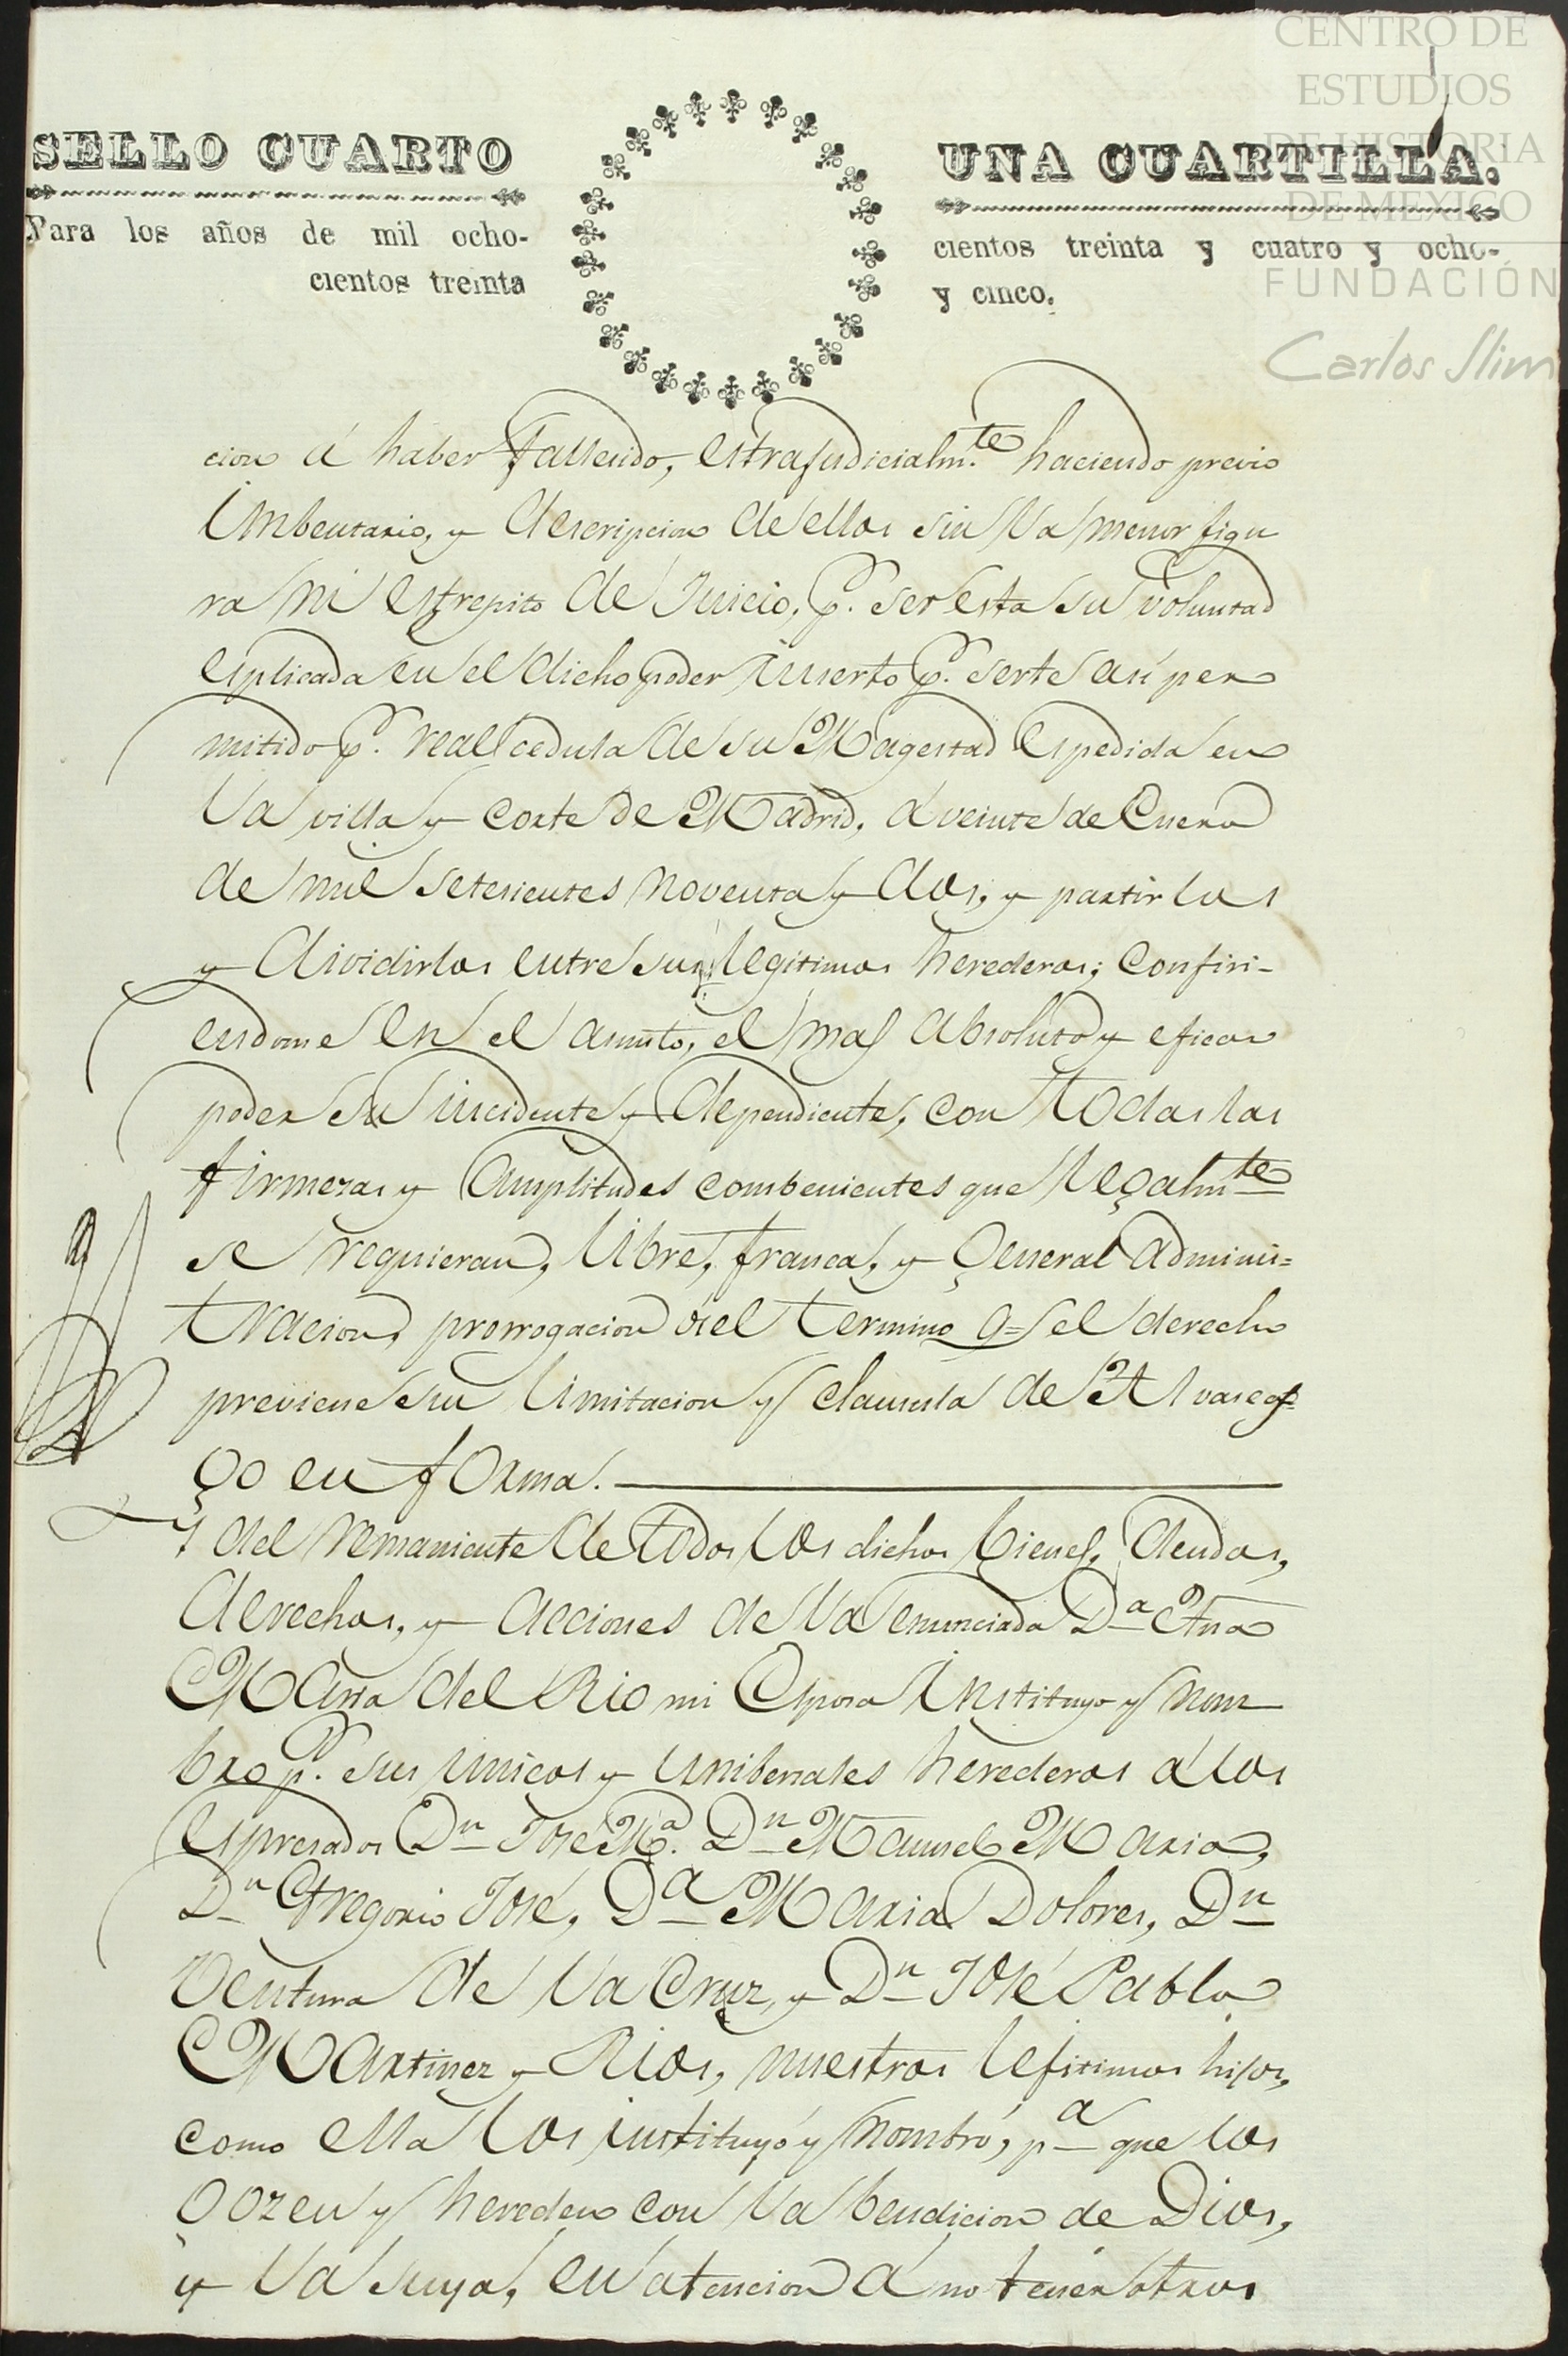 CENTRO DE
ESTUDIOS
DE HISTORIA
DE MEXICO
FUNDACIÓN
Carlos Slim
SELLO CUARTO
UNA CUARTILLA.
Para los años de mil ocho-
cientos treinta y cuatro y ocho-
cientos treinta
y cinco.
cion á haber fallecido, estrajudicialm.te haciendo previo
Imbentario, y descripcion de ellos sin la menor figu
ra ni estrepito de Juicio, p.r ser esta su voluntad
esplicada en el dicho poder inserto p.r serle asi per
mitido p.r real cedula de su Magestad espedida en
la villa y corte de Madrid, á veinte de Enero
de mil setesientes noventa y dos, y partirlos
y dividirlos entre sus legitimos herederos; confiri-
endome en el asunto, el mas absoluto y eficas
poder su incidente y dependiente, con todas las
firmezas y amplitudes combenientes que legalmte
se requieran, libre, franca, y general adminis=
tracion, prorrogacion del termino q= el derecho
previene sin limitacion y clausula de Alvaceas
go en forma.
Y del remaniente de todos los dichos bienes, deudas,
derechos, y acciones de la enunciada Da Ana
Maria del Rio mi Esposa instituyo y nom
bro p.r sus unicos y unibersales herederos á los
espresados Dn José Ma. Dn Manuel Maria,
Dn Gregorio José, Da Maria Dolores, Dn
Ventura de la Cruz, y Dn José Pablo
Martinez y Rios, nuestros lejitimos hijos,
como ella los instituyó y nombró, pa que los
gozen y hereden con la bendicion de Dios,
y la suya, en atencion á no tener otros